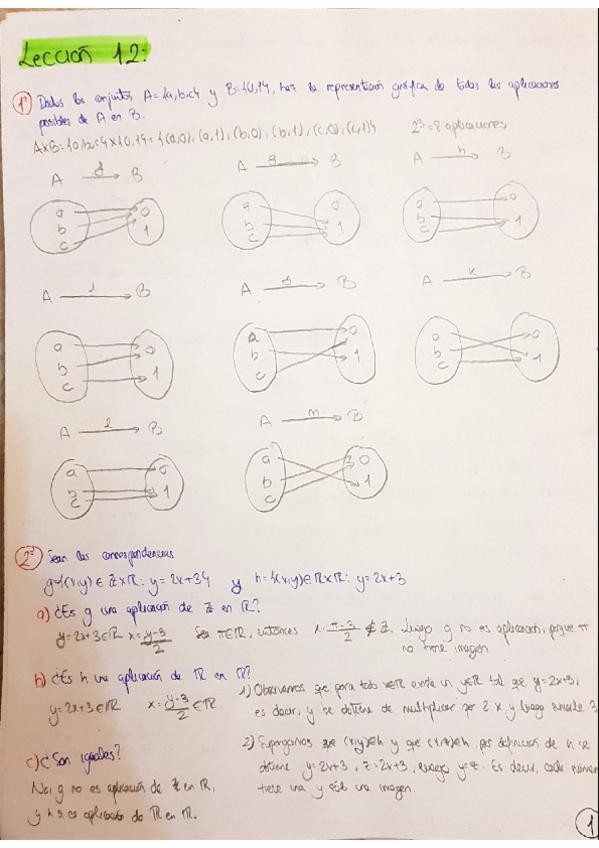 Lección 12:
1º Dados los conjuntos A={a,b,c} y B={0,1}, haz la representación gráfica de todas las aplicaciones
posibles de A en B.
AxB={a,b,c}x{0,1}={(a,0),(a,1),(b,0),(b,1),(c,0),(c,1)} 2³=8 aplicaciones
A f B A g B A h B
a b c 0 1 a b c 0 1 a b c 0 1
A i B A j B A k B
a b c 0 1 a b c 0 1 a b c 0 1
A l B A m B
a b c 0 1 a b c 0 1
2º Sean las correspondencias
g={(x,y)∈ℤxℝ: y=2x+3} y h={(x,y)∈ℝxℝ: y=2x+3
a) ¿Es g una aplicación de ℤ en ℝ?
y=2x+3∈ℝ x=(y-3)/2 Sea π∈ℝ, entonces x=(π-3)/2 ∉ ℤ. Luego g no es aplicación, porque π
no tiene imagen
b) ¿Es h una aplicación de ℝ en ℝ?
y=2x+3∈ℝ x=(y-3)/2∈ℝ
1) Observamos que para todo x∈ℝ existe un y∈ℝ tal que y=2x+3,
es decir, y se obtiene de multiplicar por 2 x y luego sumarle 3
2) Supongamos que (x,y)∈h y que (x,z)∈h, por definición de h se
obtiene y=2x+3, z=2x+3, luego y=z. Es decir, cada número
tiene una y sólo una imagen.
c) ¿Son iguales?
No, g no es aplicación de ℤ en ℝ,
y h si es aplicación de ℝ en ℝ.
1